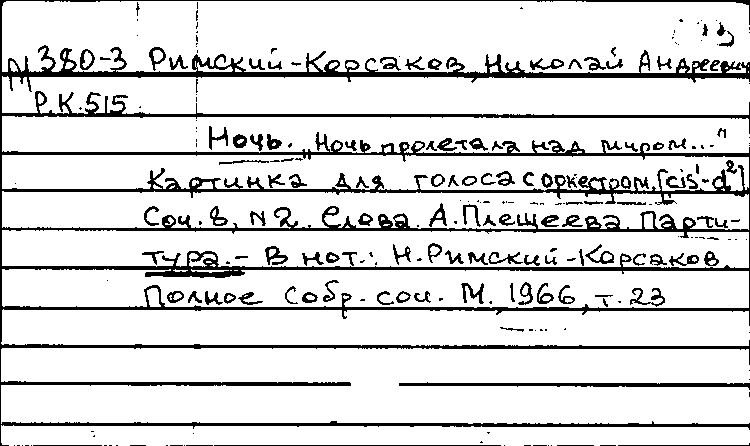 М 380-3 Римский-Корсаков, Николай Андреевич
Р.К.515
Ночь. „Ночь пролетала над миром..."
Картинка для голоса с оркестром. [cis¹-d²]
Соч. 8, N 2. Слова А. Плещеева. Парти-
тура. - В нот.: Н. Римский-Корсаков.
Полное собр. соч. М., 1966, т. 23